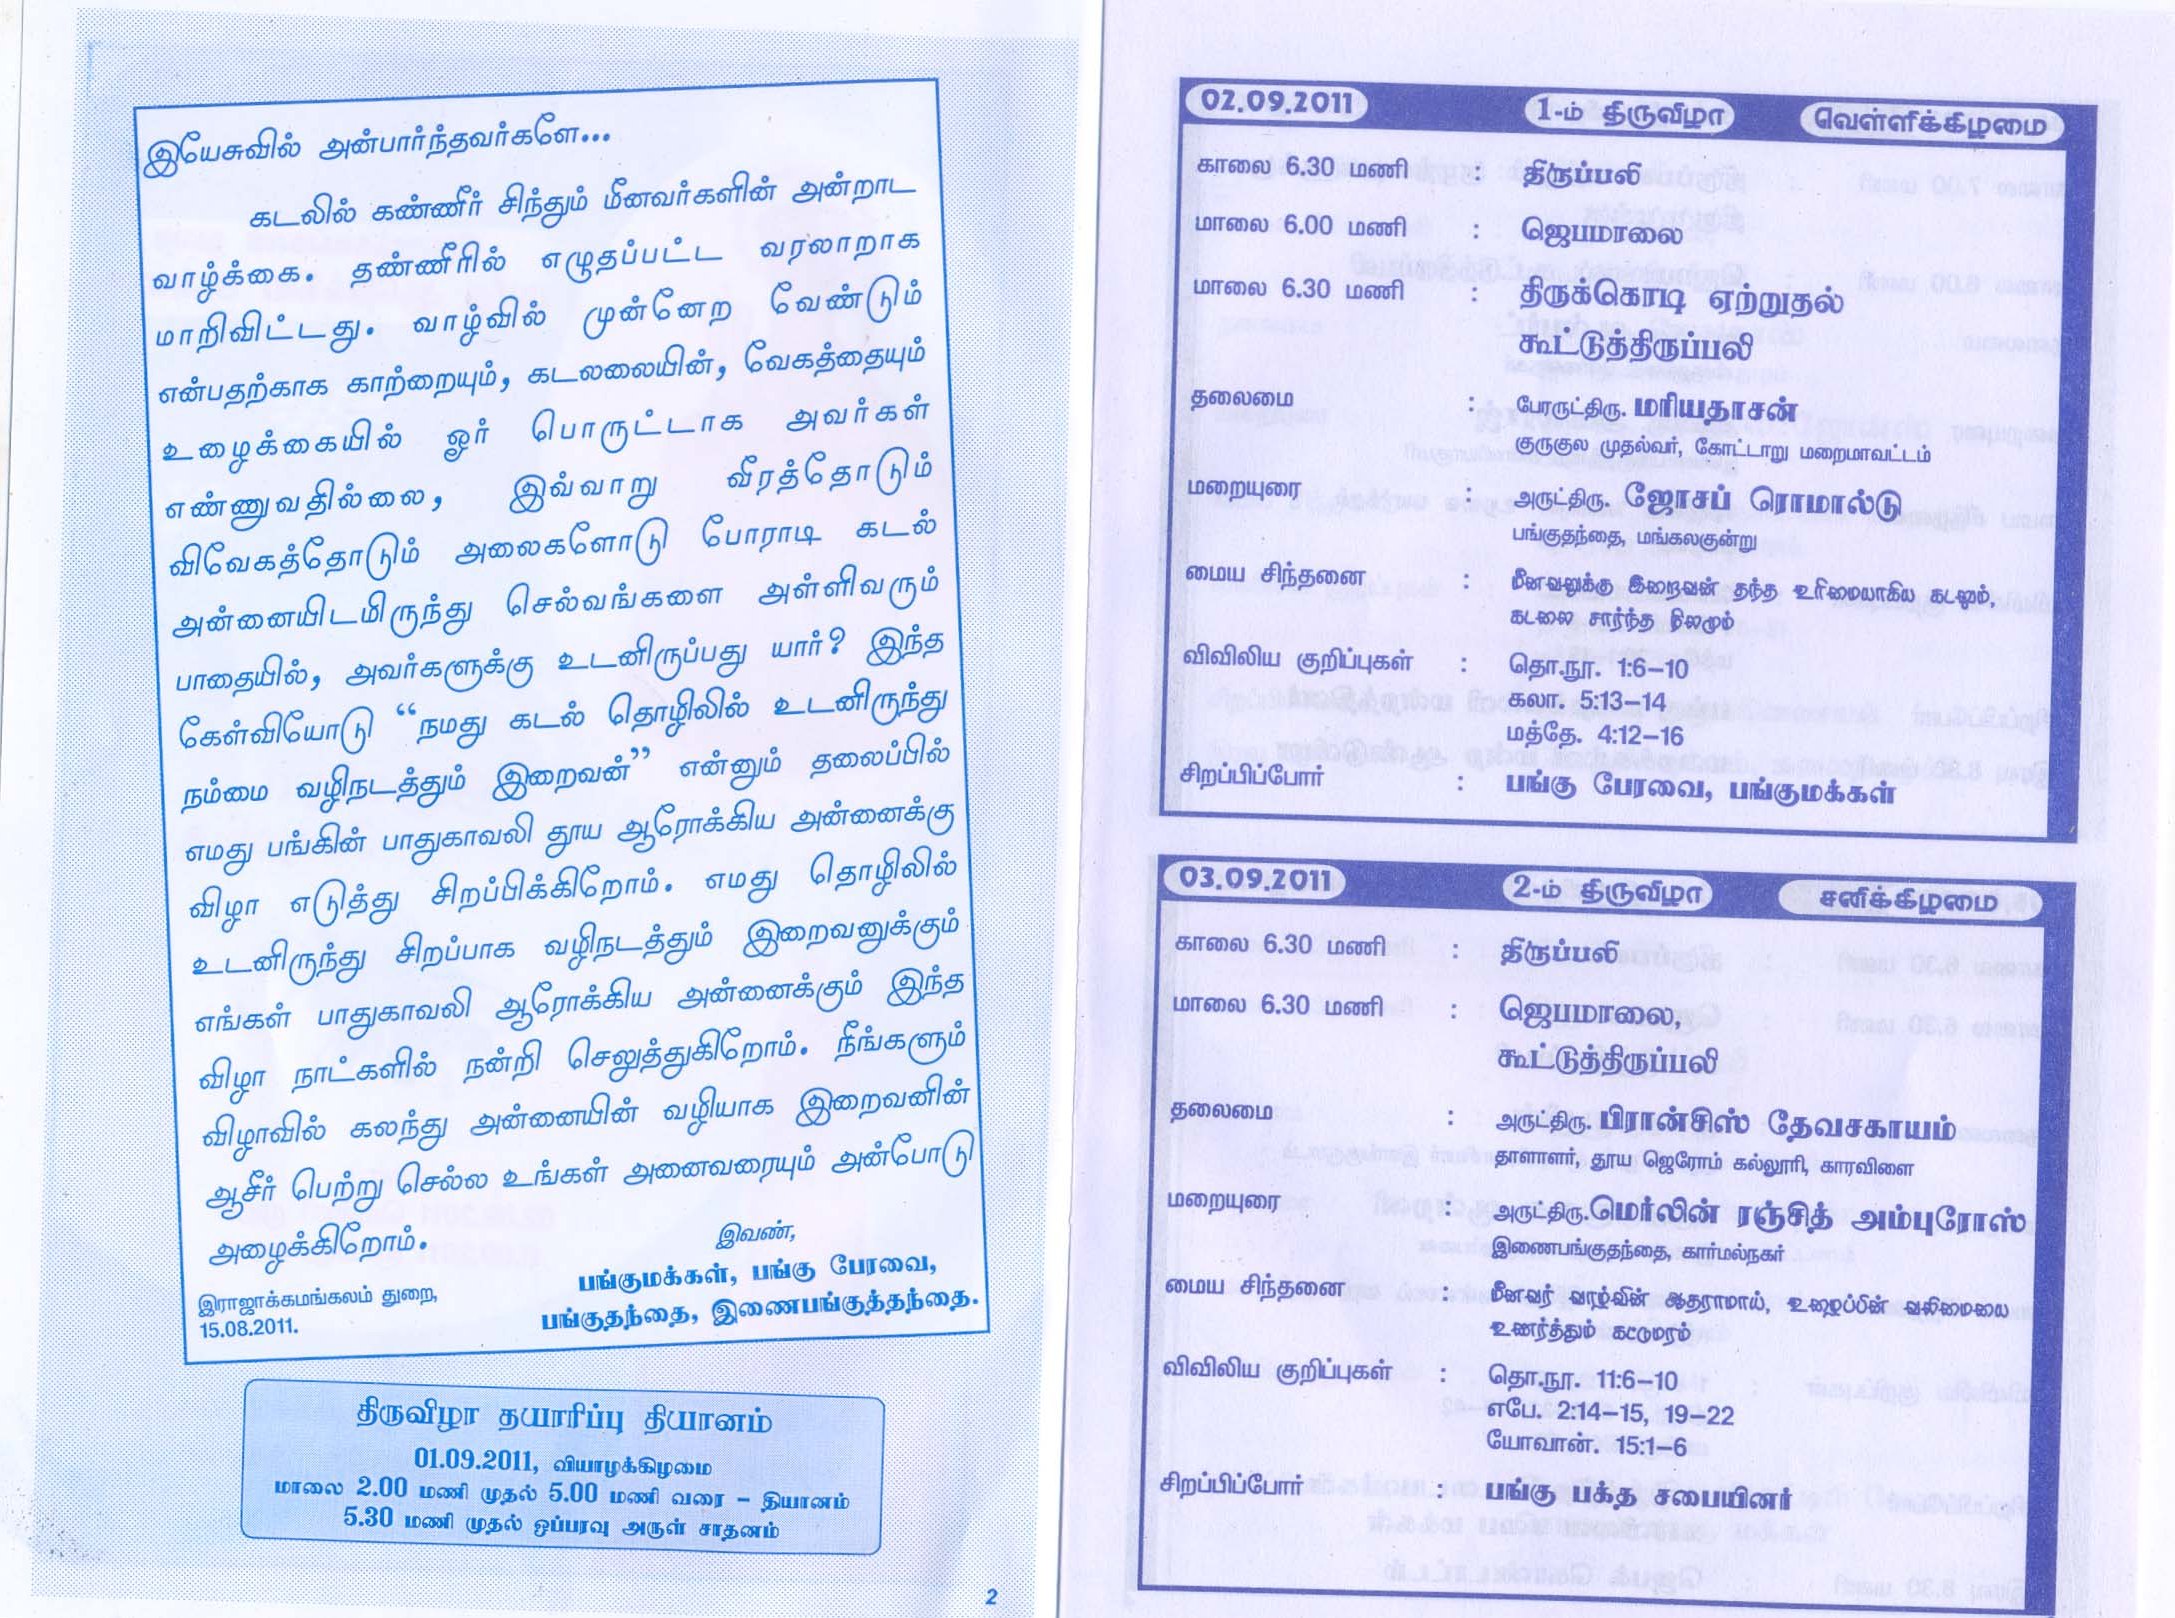 இயேசுவில் அன்பார்ந்தவர்களே...
கடலில் கண்ணீர் சிந்தும் மீனவர்களின் அன்றாட
வாழ்க்கை. தண்ணீரில் எழுதப்பட்ட வரலாறாக
மாறிவிட்டது. வாழ்வில் முன்னேற வேண்டும்
என்பதற்காக காற்றையும், கடலலையின், வேகத்தையும்
உழைக்கையில் ஓர் பொருட்டாக அவர்கள்
எண்ணுவதில்லை, இவ்வாறு வீரத்தோடும்
விவேகத்தோடும் அலைகளோடு போராடி கடல்
அன்னையிடமிருந்து செல்வங்களை அள்ளிவரும்
பாதையில், அவர்களுக்கு உடனிருப்பது யார்? இந்த
கேள்வியோடு “நமது கடல் தொழிலில் உடனிருந்து
நம்மை வழிநடத்தும் இறைவன்” என்னும் தலைப்பில்
எமது பங்கின் பாதுகாவலி தூய ஆரோக்கிய அன்னைக்கு
விழா எடுத்து சிறப்பிக்கிறோம். எமது தொழிலில்
உடனிருந்து சிறப்பாக வழிநடத்தும் இறைவனுக்கும்
எங்கள் பாதுகாவலி ஆரோக்கிய அன்னைக்கும் இந்த
விழா நாட்களில் நன்றி செலுத்துகிறோம். நீங்களும்
விழாவில் கலந்து அன்னையின் வழியாக இறைவனின்
ஆசீர் பெற்று செல்ல உங்கள் அனைவரையும் அன்போடு
அழைக்கிறோம்.
இவண்,
பங்குமக்கள், பங்கு பேரவை,
பங்குதந்தை, இணைபங்குத்தந்தை.
இராஜாக்கமங்கலம் துறை,
15.08.2011.
திருவிழா தயாரிப்பு தியானம்
01.09.2011, வியாழக்கிழமை
மாலை 2.00 மணி முதல் 5.00 மணி வரை – தியானம்
5.30 மணி முதல் ஒப்பரவு அருள் சாதனம்
2
02.09.2011 1-ம் திருவிழா வெள்ளிக்கிழமை
காலை 6.30 மணி : திருப்பலி
மாலை 6.00 மணி : ஜெபமாலை
மாலை 6.30 மணி : திருக்கொடி ஏற்றுதல்
கூட்டுத்திருப்பலி
தலைமை : பேரருட்திரு. மரியதாசன்
குருகுல முதல்வர், கோட்டாறு மறைமாவட்டம்
மறையுரை : அருட்திரு. ஜோசப் ரொமால்டு
பங்குதந்தை, மங்கலகுன்று
மைய சிந்தனை : மீனவனுக்கு இறைவன் தந்த உரிமையாகிய கடலும்,
கடலை சார்ந்த நிலமும்
விவிலிய குறிப்புகள் : தொ.நூ. 1:6–10
கலா. 5:13–14
மத்தே. 4:12–16
சிறப்பிப்போர் : பங்கு பேரவை, பங்குமக்கள்
03.09.2011 2-ம் திருவிழா சனிக்கிழமை
காலை 6.30 மணி : திருப்பலி
மாலை 6.30 மணி : ஜெபமாலை,
கூட்டுத்திருப்பலி
தலைமை : அருட்திரு. பிரான்சிஸ் தேவசகாயம்
தாளாளர், தூய ஜெரோம் கல்லூரி, காரவிளை
மறையுரை : அருட்திரு.மெர்லின் ரஞ்சித் அம்புரோஸ்
இணைபங்குதந்தை, கார்மல்நகர்
மைய சிந்தனை : மீனவர் வாழ்வின் ஆதாரமாய், உழைப்பின் வலிமையை
உணர்த்தும் கட்டுமரம்
விவிலிய குறிப்புகள் : தொ.நூ. 11:6–10
எபே. 2:14–15, 19–22
யோவான். 15:1–6
சிறப்பிப்போர் : பங்கு பக்த சபையினர்